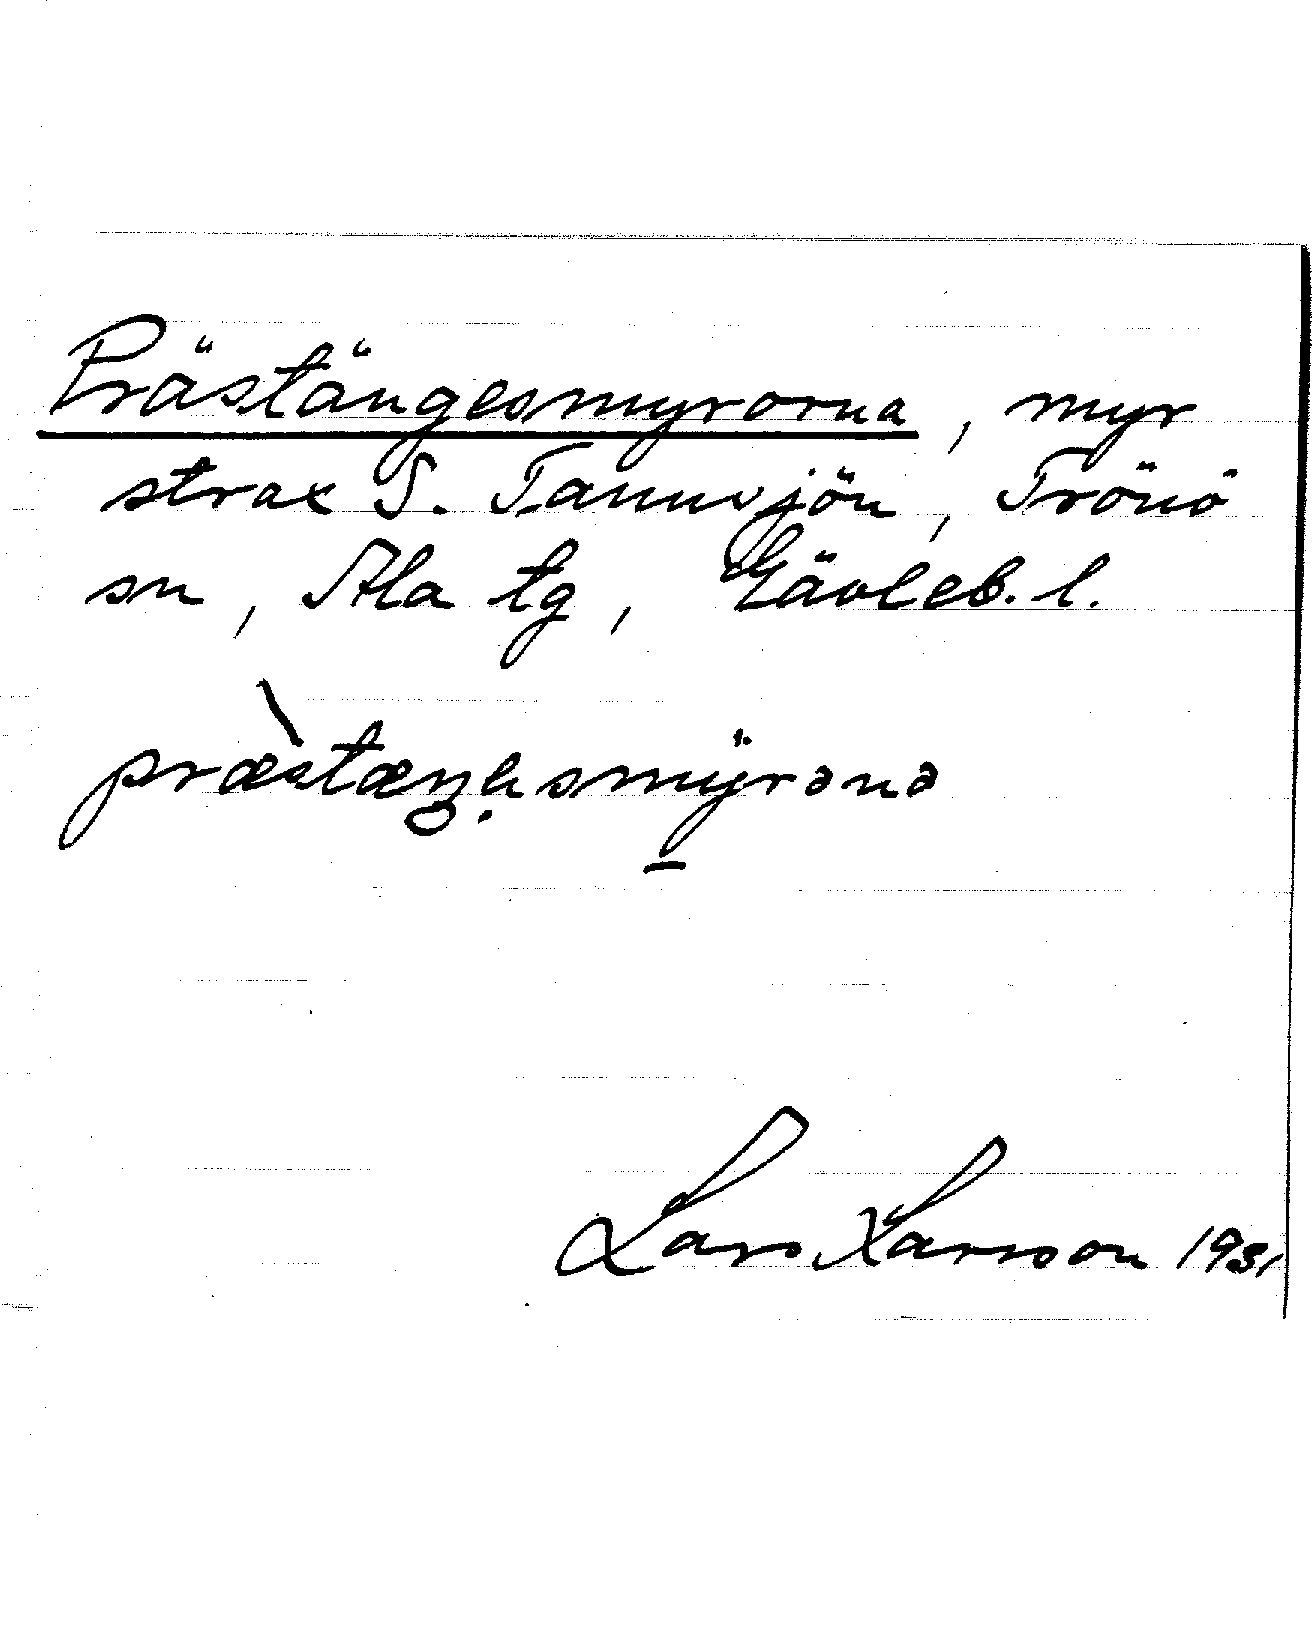 Prästängesmyrorna, myr
strax S. Tannsjön, Trönö
sn, Ala tg, Gävleb. l.
præ̀stæŋəsmyrənə
Lars Larsson 1931